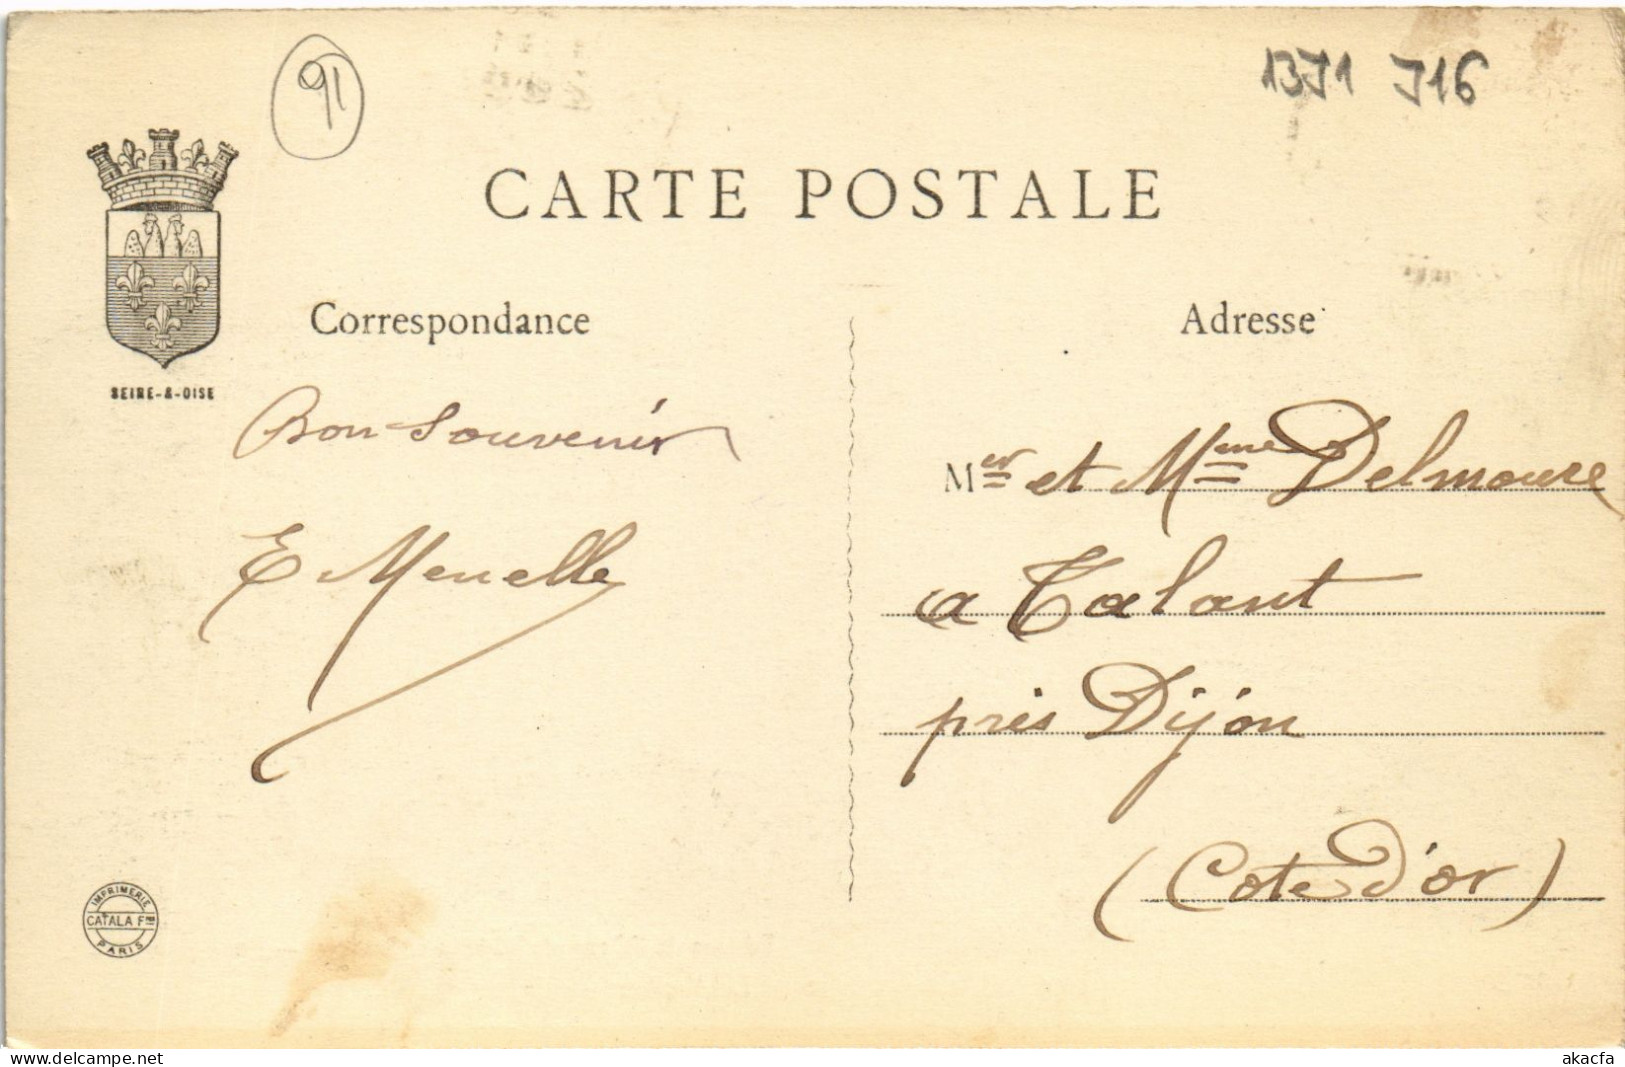 91
1371 J16
CARTE POSTALE
SEINE-&-OISE
Correspondance
Adresse
Bon Souvenir
E Menelle
Mer et Mme Delmoure
a Talant
près Dijon
(Cote d'or)
IMPRIMERIE
CATALA Fres
PARIS
www.delcampe.net
akacfa